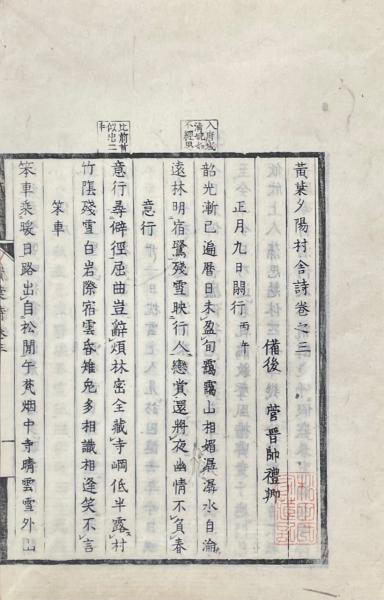 入府城
不經思
比前首
似出二
手
黃葉夕陽村舍詩卷之三
備後 菅晉帥禮卿
正月九日閒行 丙午
韶光漸已遍曆日未盈旬靄靄山相媚潺潺水自淪
遠林明宿鷺殘雪映行人戀賞還將夜幽情不負春
意行
意行尋僻徑屈曲豈辭煩林密全藏寺崗低半露村
竹陰殘雪白岩際宿雲昏雉兔多相識相逢笑不言
笨車
笨車乘暖日路出自松間午梵烟中寺晴雲雪外山